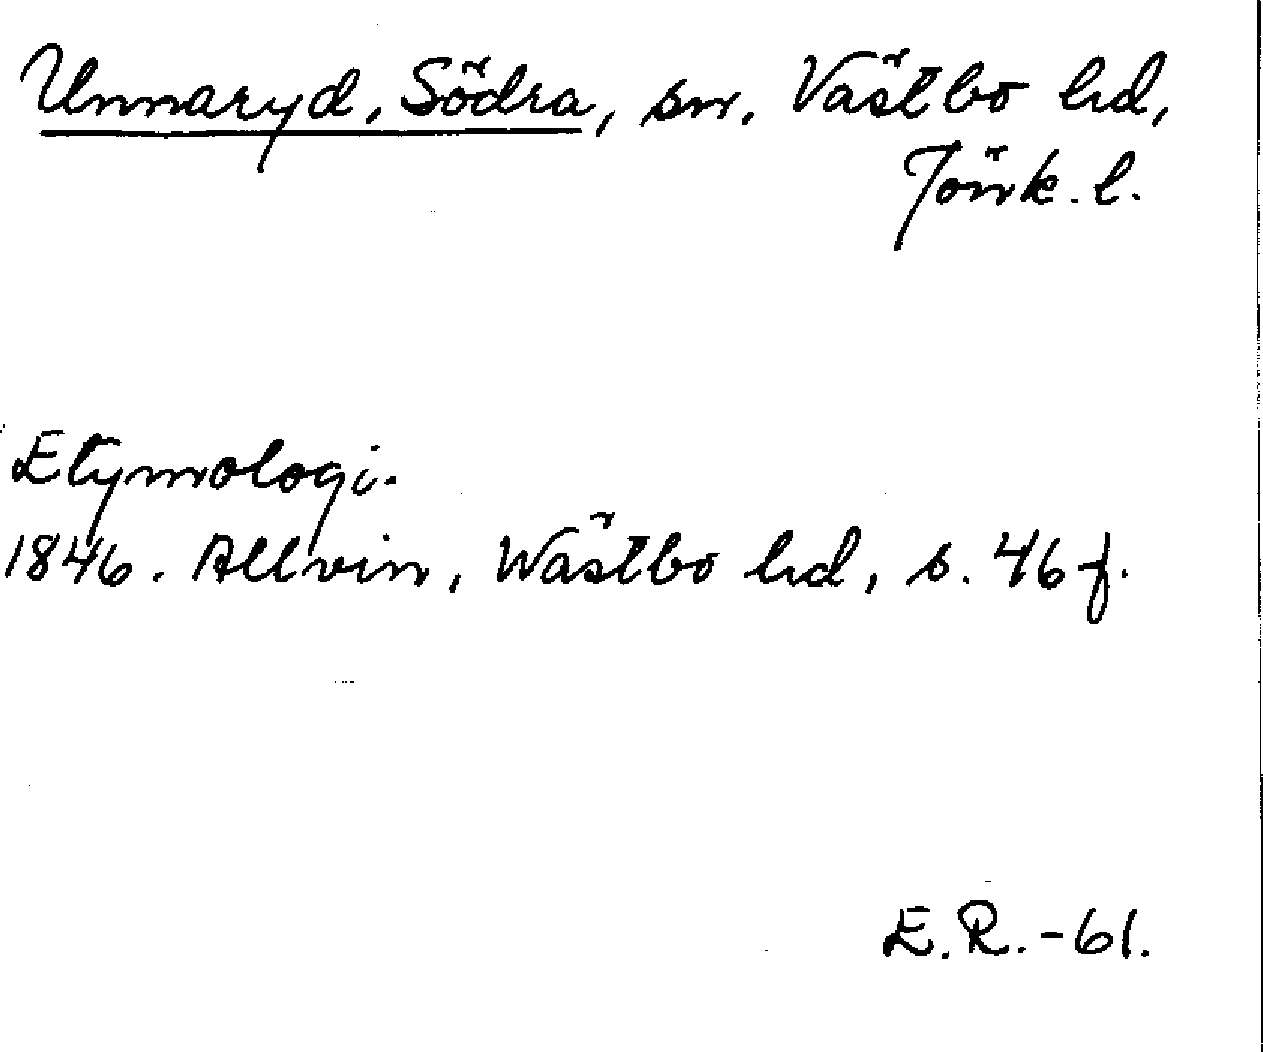 Unnaryd, Södra, sn. Västbo hd,
Jönk. l.
Etymologi.
1846. Allvin, Wästbo hd, s. 46 f.
E.R.-61.